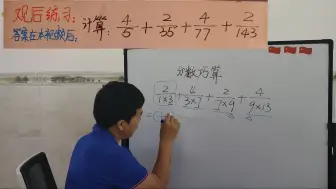 观后练习:
答案在本视频后。
计算: 4/5 + 2/35 + 4/77 + 2/143
分数巧算
2/1×3 + 4/3×7 + 2/7×9 + 4/9×13
=(